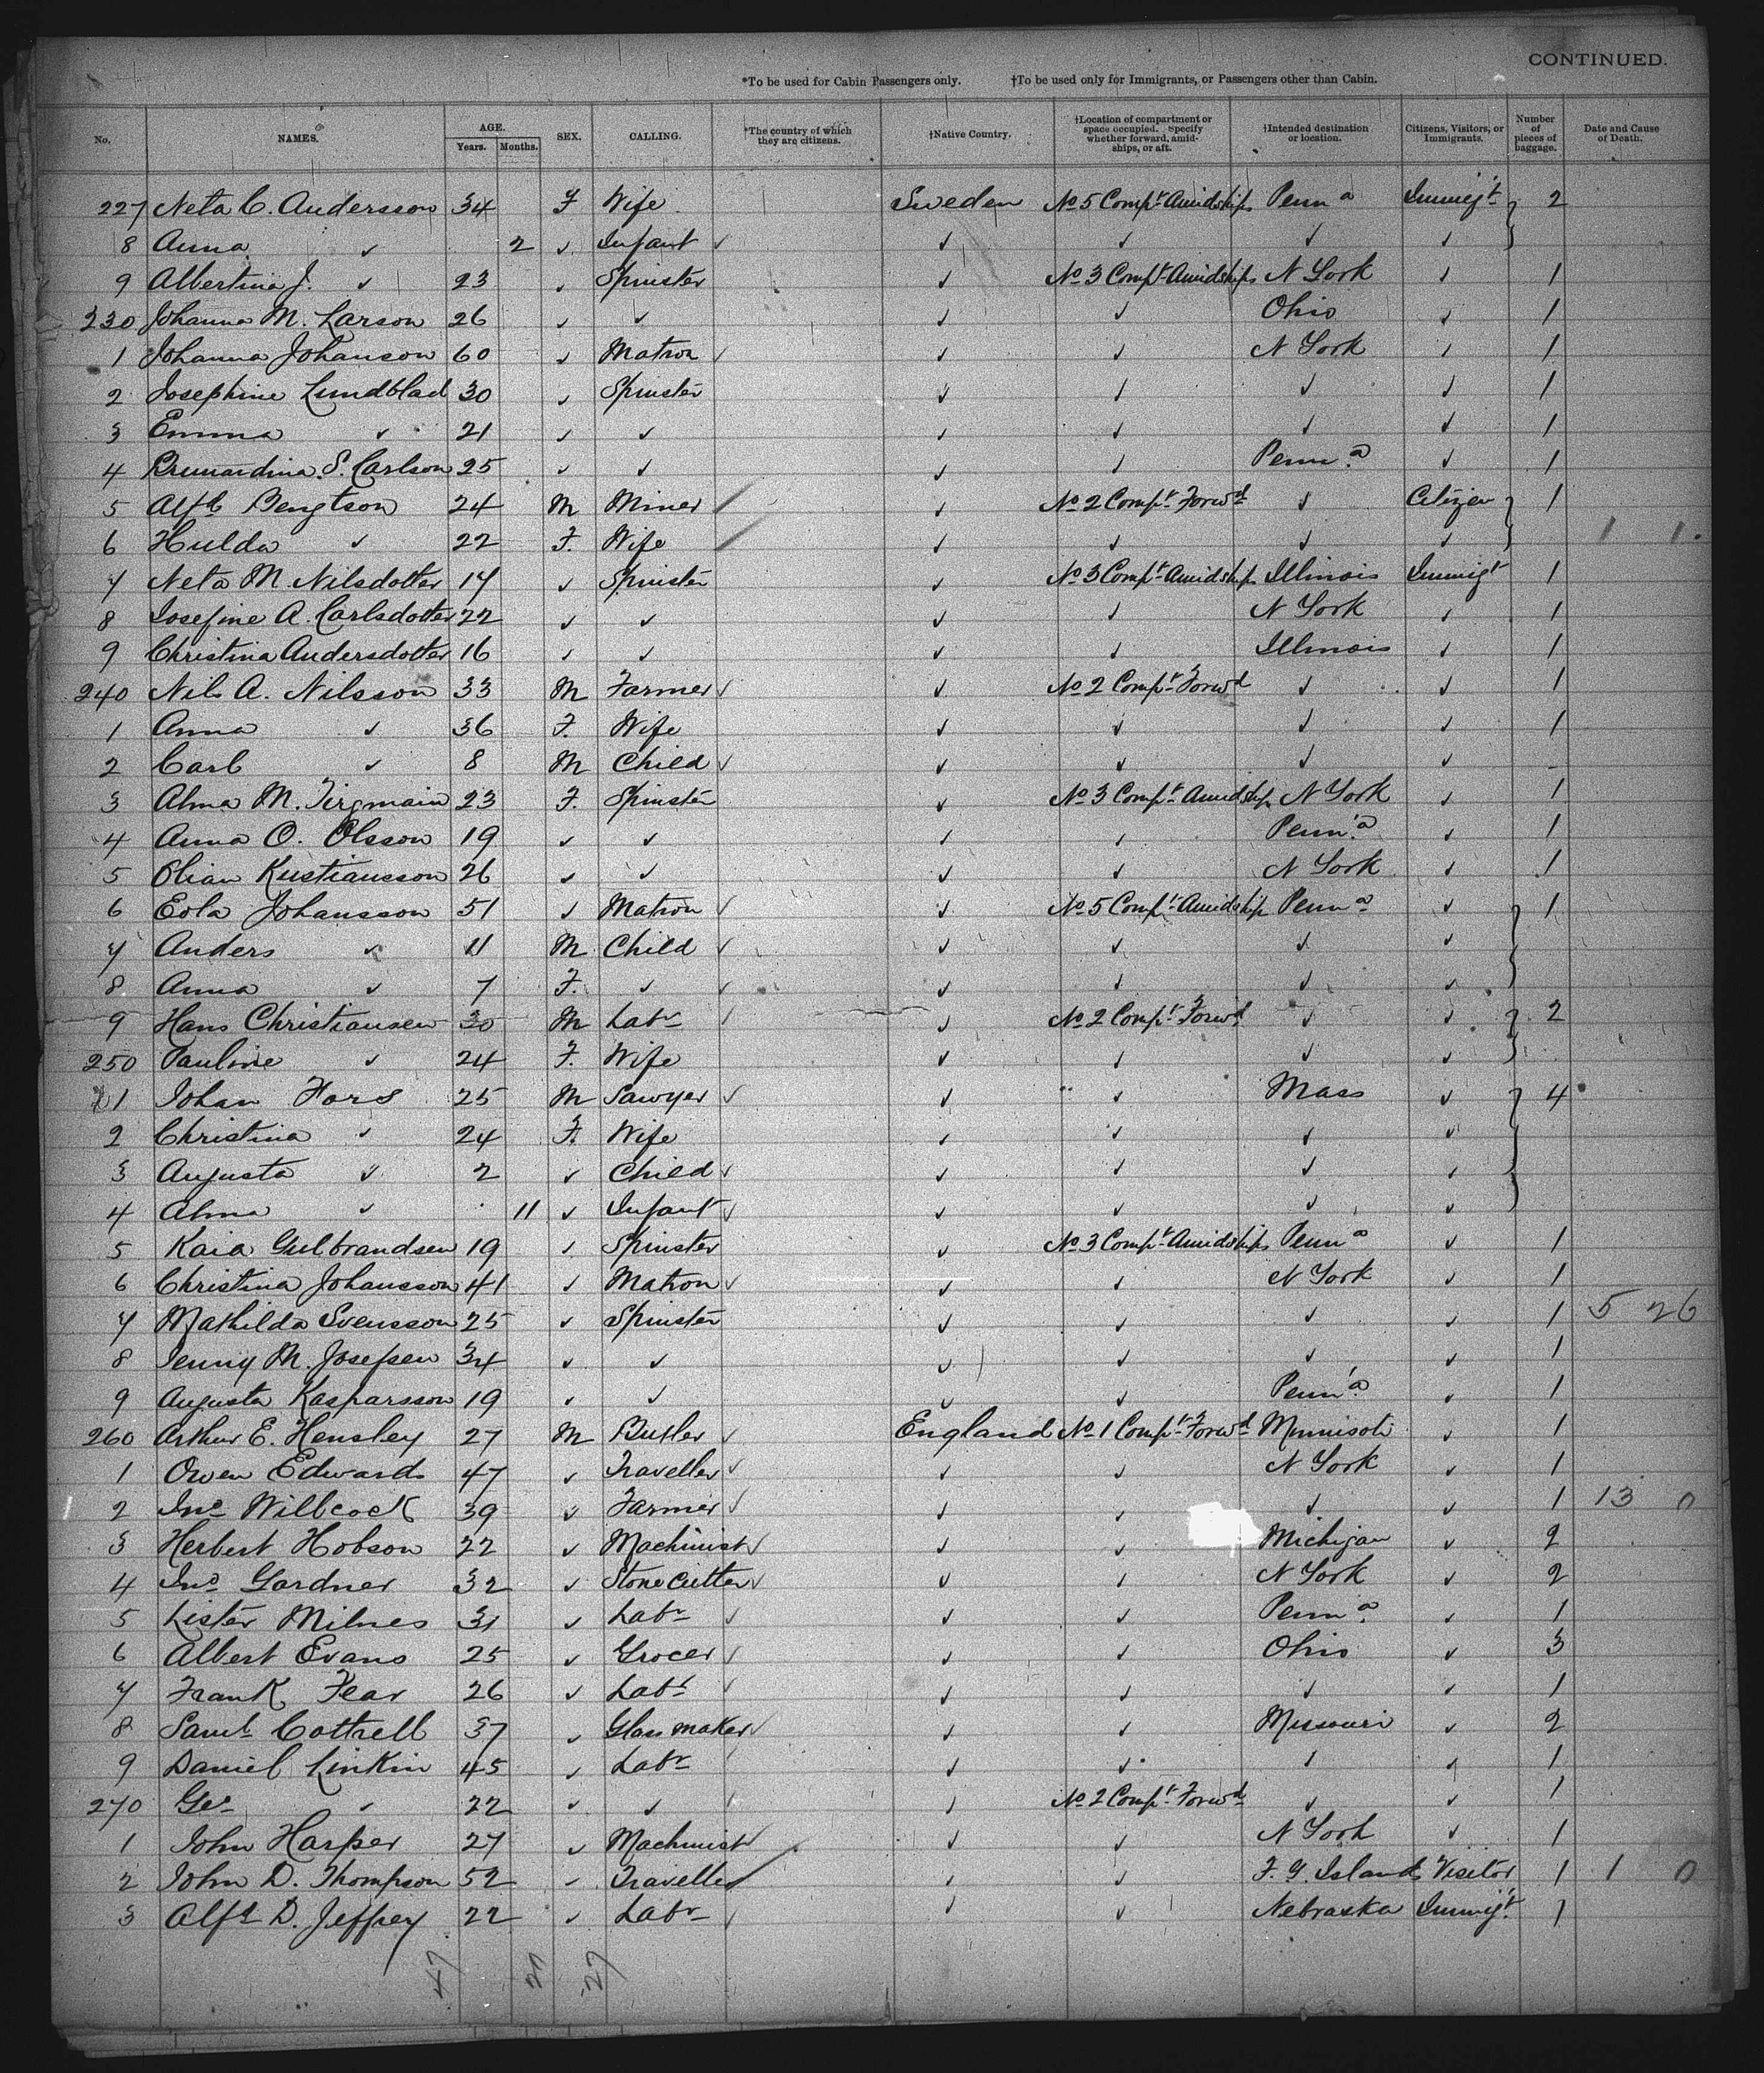 CONTINUED.
*To be used for Cabin Passengers only. †To be used only for Immigrants, or Passengers other than Cabin.
No. NAMES. AGE. Years. Months. SEX. CALLING. *The country of which they are citizens. †Native Country. †Location of compartment or space occupied. Specify whether forward, amidships, or aft. †Intended destination or location. Citizens, Visitors, or Immigrants. Number of pieces of baggage. Date and Cause of Death.
227 Neta C. Andersson 34 F Wife Sweden No 5 Compt Amidships Penna Immigt 2
8 Anna ✓ 2 ✓ Infant ✓ ✓ ✓ ✓ ✓
9 Albertina J. ✓ 23 ✓ Spinster ✓ No 3 Compt Amidships N York ✓ 1
230 Johanna M. Larson 26 ✓ ✓ ✓ ✓ Ohio ✓ 1
1 Johanna Johanson 60 ✓ Matron ✓ ✓ ✓ N York ✓ 1
2 Josephine Lundblad 30 ✓ Spinster ✓ ✓ ✓ ✓ 1
3 Emma ✓ 21 ✓ ✓ ✓ ✓ ✓ ✓ 1
4 Brunardina S. Carlson 25 ✓ ✓ ✓ ✓ Penna ✓ 1
5 Alfd Bengtson 24 M Miner ✓ No 2 Compt Forwd ✓ Citizen 1
6 Hulda ✓ 22 F. Wife ✓ ✓ ✓ ✓ 1 1.
7 Neta M. Nilsdotter 17 ✓ Spinster ✓ No 3 Compt Amidship Illinois Immigt 1
8 Josefine A. Carlsdotter 22 ✓ ✓ ✓ ✓ N York ✓ 1
9 Christina Andersdotter 16 ✓ ✓ ✓ ✓ Illinois ✓ 1
240 Nils A. Nilsson 33 M Farmer ✓ ✓ No 2 Compt Forwd ✓ ✓ 1
1 Anna ✓ 36 F. Wife ✓ ✓ ✓ ✓ 1
2 Carl ✓ 8 M Child ✓ ✓ ✓ ✓ ✓ -
3 Alma M. Tirgmain 23 F. Spinster ✓ No 3 Compt Amidship N York ✓ 1
4 Anna O. Olsson 19 ✓ ✓ ✓ ✓ Penna ✓ 1
5 Olian Kustiansson 26 ✓ ✓ ✓ ✓ N York ✓ 1
6 Eola Johansson 51 ✓ Matron ✓ ✓ No 5 Compt Amidship Penna ✓ 1
7 Anders ✓ 11 M Child ✓ ✓ ✓ ✓ ✓
8 Anna ✓ 7 F. ✓ ✓ ✓ ✓ ✓ ✓
9 Hans Christiansen 30 M Labr ✓ ✓ No 2 Compt Forwd ✓ ✓ 2
250 Pauline ✓ 24 F. Wife ✓ ✓ ✓ ✓
1 Johan Fors 25 M Sawyer ✓ ✓ ✓ Mass ✓ 4
2 Christina ✓ 24 F. Wife ✓ ✓ ✓ ✓
3 Augusta ✓ 2 ✓ Child ✓ ✓ ✓ ✓ ✓
4 Alma ✓ 11 ✓ Infant ✓ ✓ ✓ ✓ ✓
5 Kaia Gulbrandsen 19 ✓ Spinster ✓ No 3 Compt Amidships Penna ✓ 1
6 Christina Johansson 41 ✓ Matron ✓ ✓ ✓ N York ✓ 1
7 Mathilda Svensson 25 ✓ Spinster ✓ ✓ ✓ ✓ 1 5 26
8 Jenny M. Josefsen 34 ✓ ✓ ✓ ✓ ✓ ✓ 1
9 Augusta Kasparsson 19 ✓ ✓ ✓ ✓ Penna ✓ 1
260 Arthur E. Hensley 27 M Butler ✓ England No 1 Compt Forwd Minnisoti ✓ 1
1 Owen Edwards 47 ✓ Traveller ✓ ✓ ✓ N York ✓ 1
2 Jno Willcock 39 ✓ Farmer ✓ ✓ ✓ ✓ ✓ 1 13 0
3 Herbert Hobson 22 ✓ Machinist ✓ ✓ ✓ Michigan ✓ 2
4 Jno Gardner 32 ✓ Stone Cutter ✓ ✓ ✓ N York ✓ 2
5 Lister Milnes 31 ✓ Labr ✓ ✓ ✓ Penna ✓ 1
6 Albert Evans 25 ✓ Grocer ✓ ✓ ✓ Ohio ✓ 3
7 Frank Fear 26 ✓ Labr ✓ ✓ ✓ ✓ ✓ 1
8 Saml Cottrell 37 ✓ Glass maker ✓ ✓ ✓ Missouri ✓ 2
9 Daniel Linkin 45 ✓ Labr ✓ ✓ ✓ ✓ ✓ 1
270 Geo ✓ 22 ✓ ✓ ✓ ✓ No 2 Compt Forwd ✓ ✓ 1
1 John Harper 27 ✓ Machinist ✓ ✓ ✓ N York ✓ 1
2 John D. Thompson 52 ✓ Traveller ✓ ✓ F. J. Islands Visitor 1 1 0
3 Alfd D. Jeffrey 22 ✓ Labr ✓ ✓ ✓ Nebraska Immigt 1
47 20 27